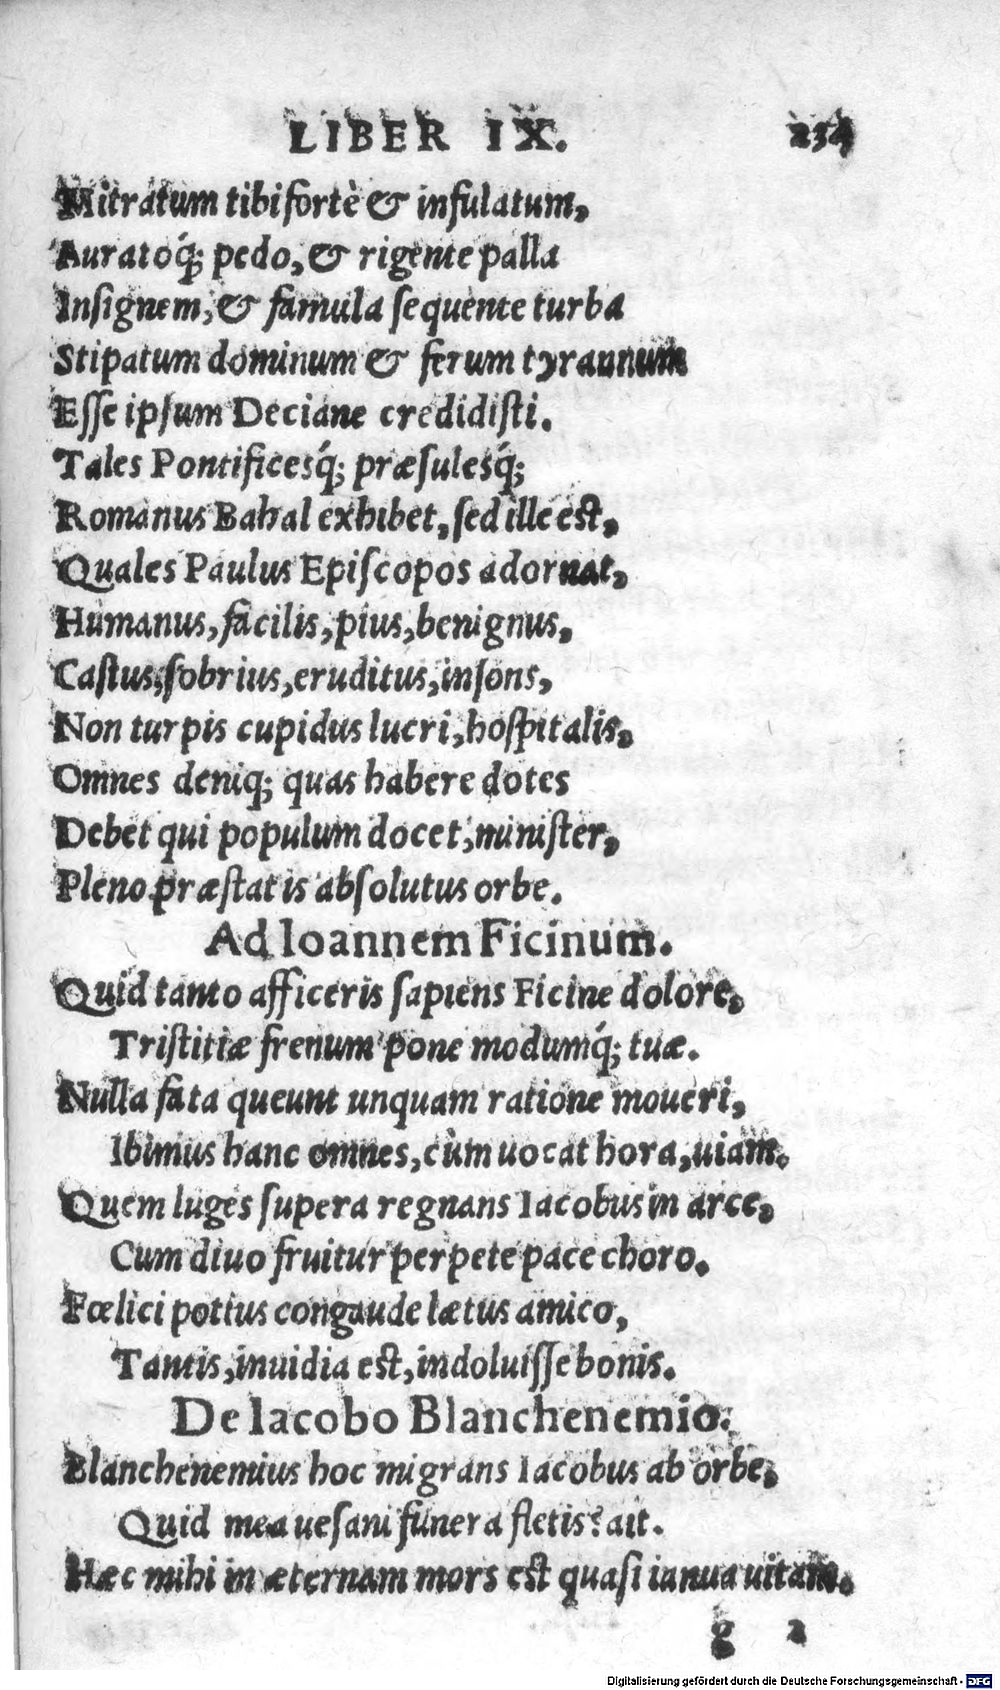 LIBER IX. 234
Mitratum tibi fortè & infulatum,
Auratoq́; pedo, & rigente palla
Insignem, & famula sequente turba
Stipatum dominum & ferum tyrannum
Esse ipsum Deciane credidisti.
Tales Pontificesq́; præsulesq́;
Romanus Bahal exhibet, sed ille est,
Quales Paulus Episcopos adornat,
Humanus, facilis, pius, benignus,
Castus, sobrius, eruditus, insons,
Non turpis cupidus lucri, hospitalis,
Omnes deniq; quas habere dotes
Debet qui populum docet, minister,
Pleno præstat is absolutus orbe.
Ad Ioannem Ficinum.
Quid tanto afficeris sapiens Ficine dolore,
Tristitiæ frenum pone modumq́; tuæ.
Nulla fata queunt unquam ratione moueri,
Ibimus hanc omnes, cùm uocat hora, uiam.
Quem luges supera regnans Iacobus in arce,
Cum diuo fruitur perpete pace choro.
Fœlici potius congaude lætus amico,
Tantis, inuidia est, indoluisse bonis.
De Iacobo Blanchenemio.
Blanchenemius hoc migrans Iacobus ab orbe,
Quid mea uesani funera fletis? ait.
Hæc mihi in æternam mors est quasi ianua uitam.
g 2
Digitalisierung gefördert durch die Deutsche Forschungsgemeinschaft - DFG